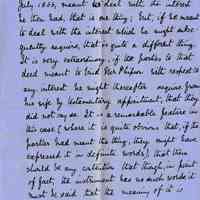 July 1865, meant to deal with the interest
he then had, that is one thing; but, if he meant
to deal with the interest which he might subse-
quently acquire, that is quite a different thing.
It is very extraordinary, if the parties to that
deed meant to bind Mr Phipson with respect to
any interest he might thereafter acquire from
his wife by testamentary appointment, that they
did not say so. It is a remarkable feature in
this case, (where it is quite obvious that, if the
parties had meant the thing, they might have
expressed it in definite words) that there
should be any contention that though, in point
of fact, the instrument has no such words it
must be said that the meaning of it is